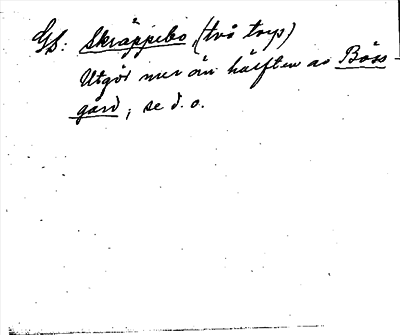 Gs: Skräppebo, (två torp)
Utgör mer än hälften av Böss-
gård, se d. o.